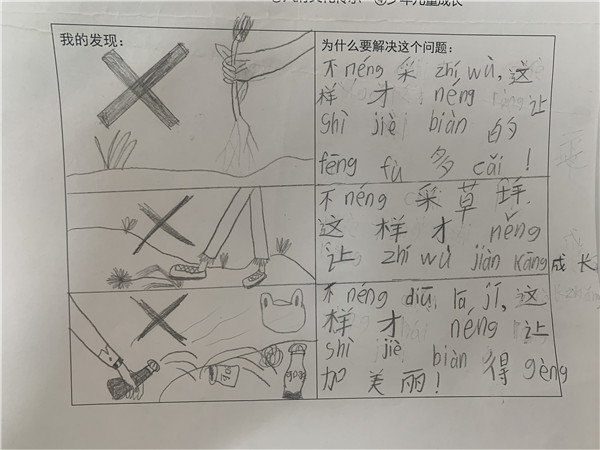 ④少年儿童成长
我的发现：
为什么要解决这个问题：
不néng采zhí wù，这
样才néng让
shì jiè biàn的
fēng fù多cǎi！
不néng采草坪.
这样才néng
让zhí wù jiàn kāng成长
不néng diū lā jī，这
样才néng让
shì jiè biàn得gèng
加美丽！